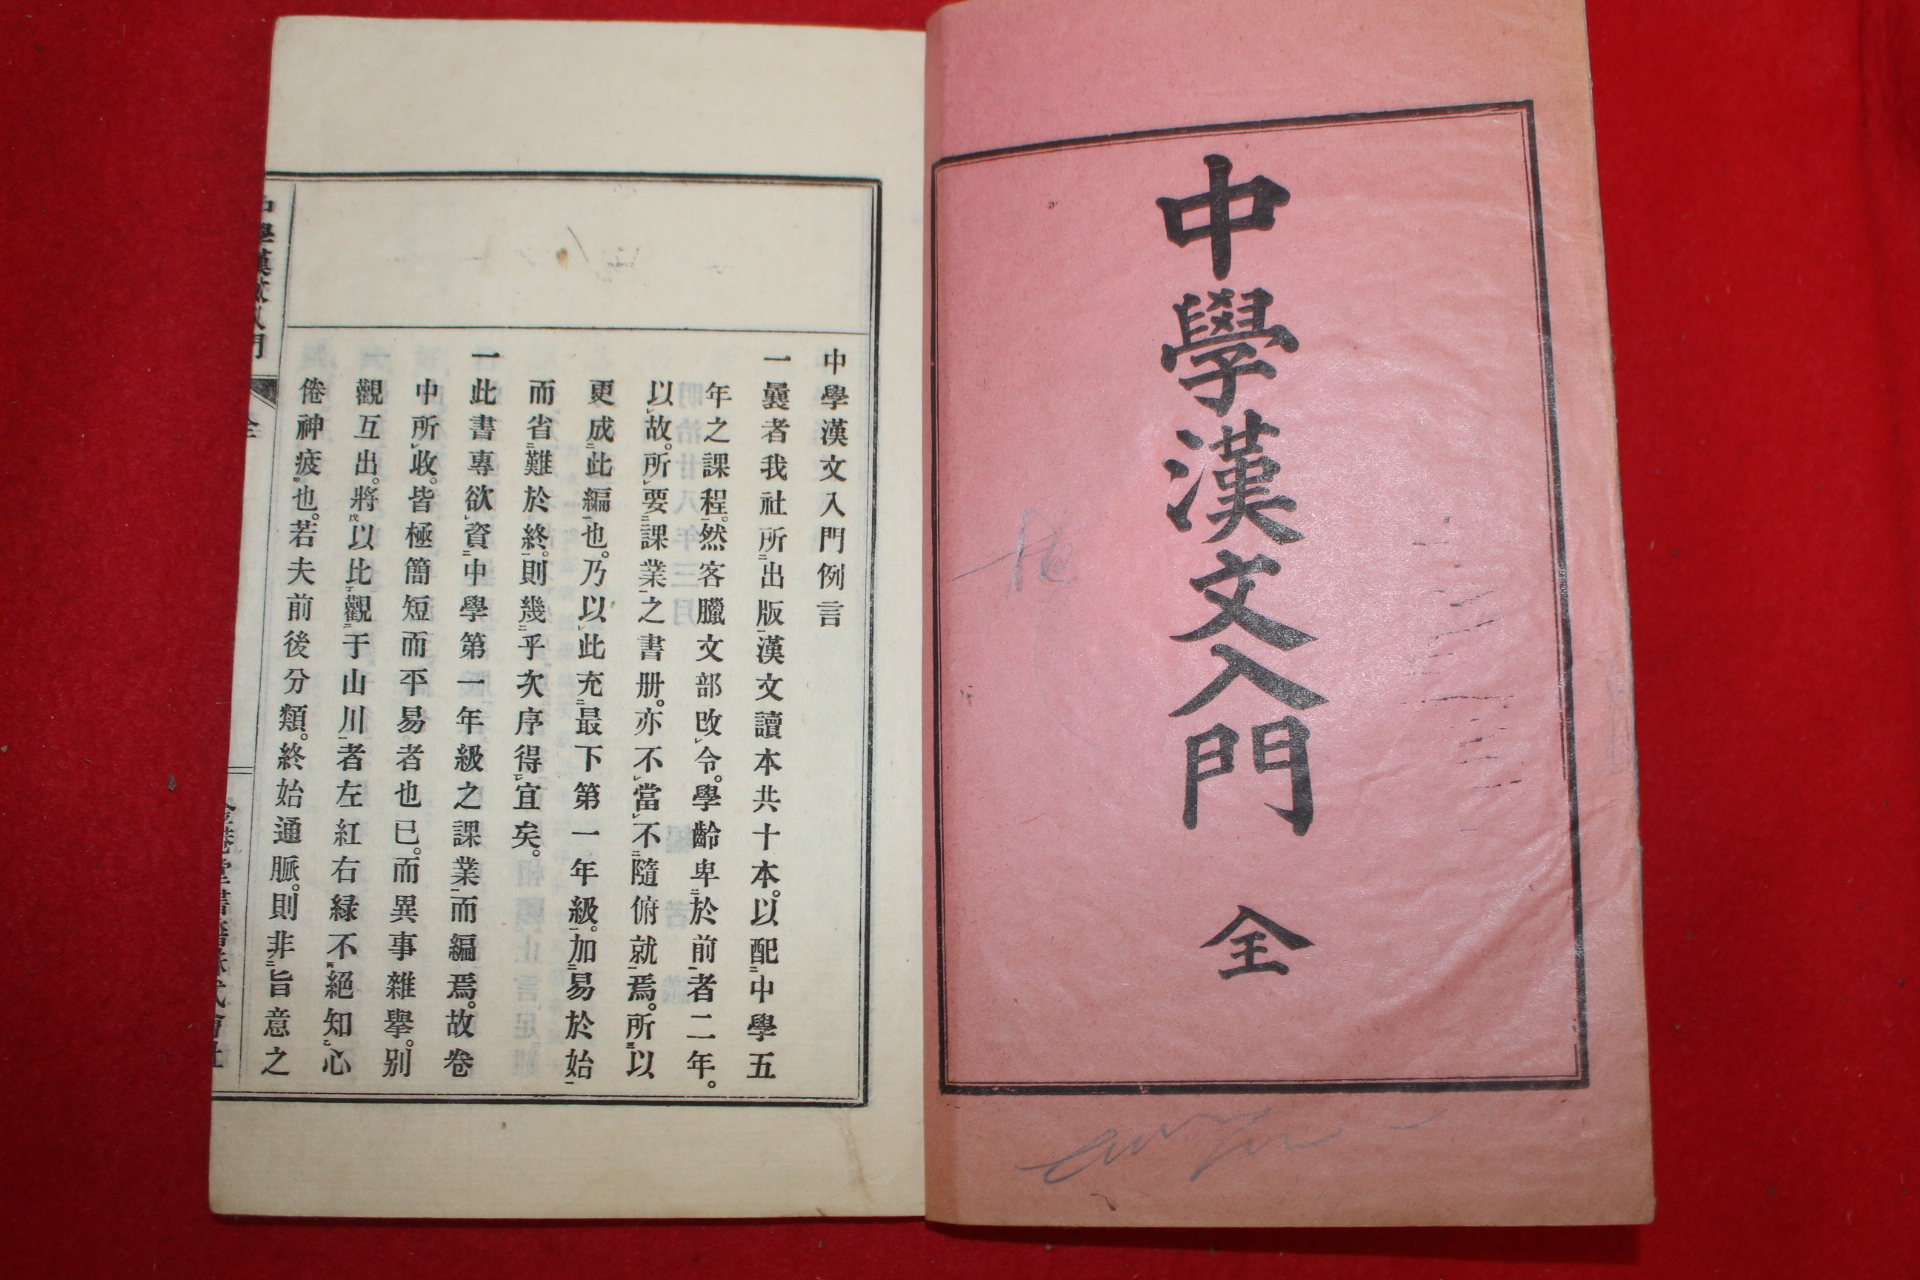 中學漢文入門 全
中學漢文入門例言
一曩者我社所出版漢文讀本共十本。以配中學五
年之課程。然客臘文部改令。學齡卑於前者二年。
以故。所要課業之書册。亦不當不隨俯就焉。所以
更成此編也。乃以此充最下第一年級。加易於始
而省難於終。則幾乎次序得宜矣。
一此書專欲資中學第一年級之課業而編焉。故卷
中所收。皆極簡短而平易者也已。而異事雜擧。別
觀互出。將以比觀于山川者左紅右緑不絕知心
倦神疲也。若夫前後分類。終始通脈。則非旨意之
中學漢文入門
全
金港堂書籍株式會社